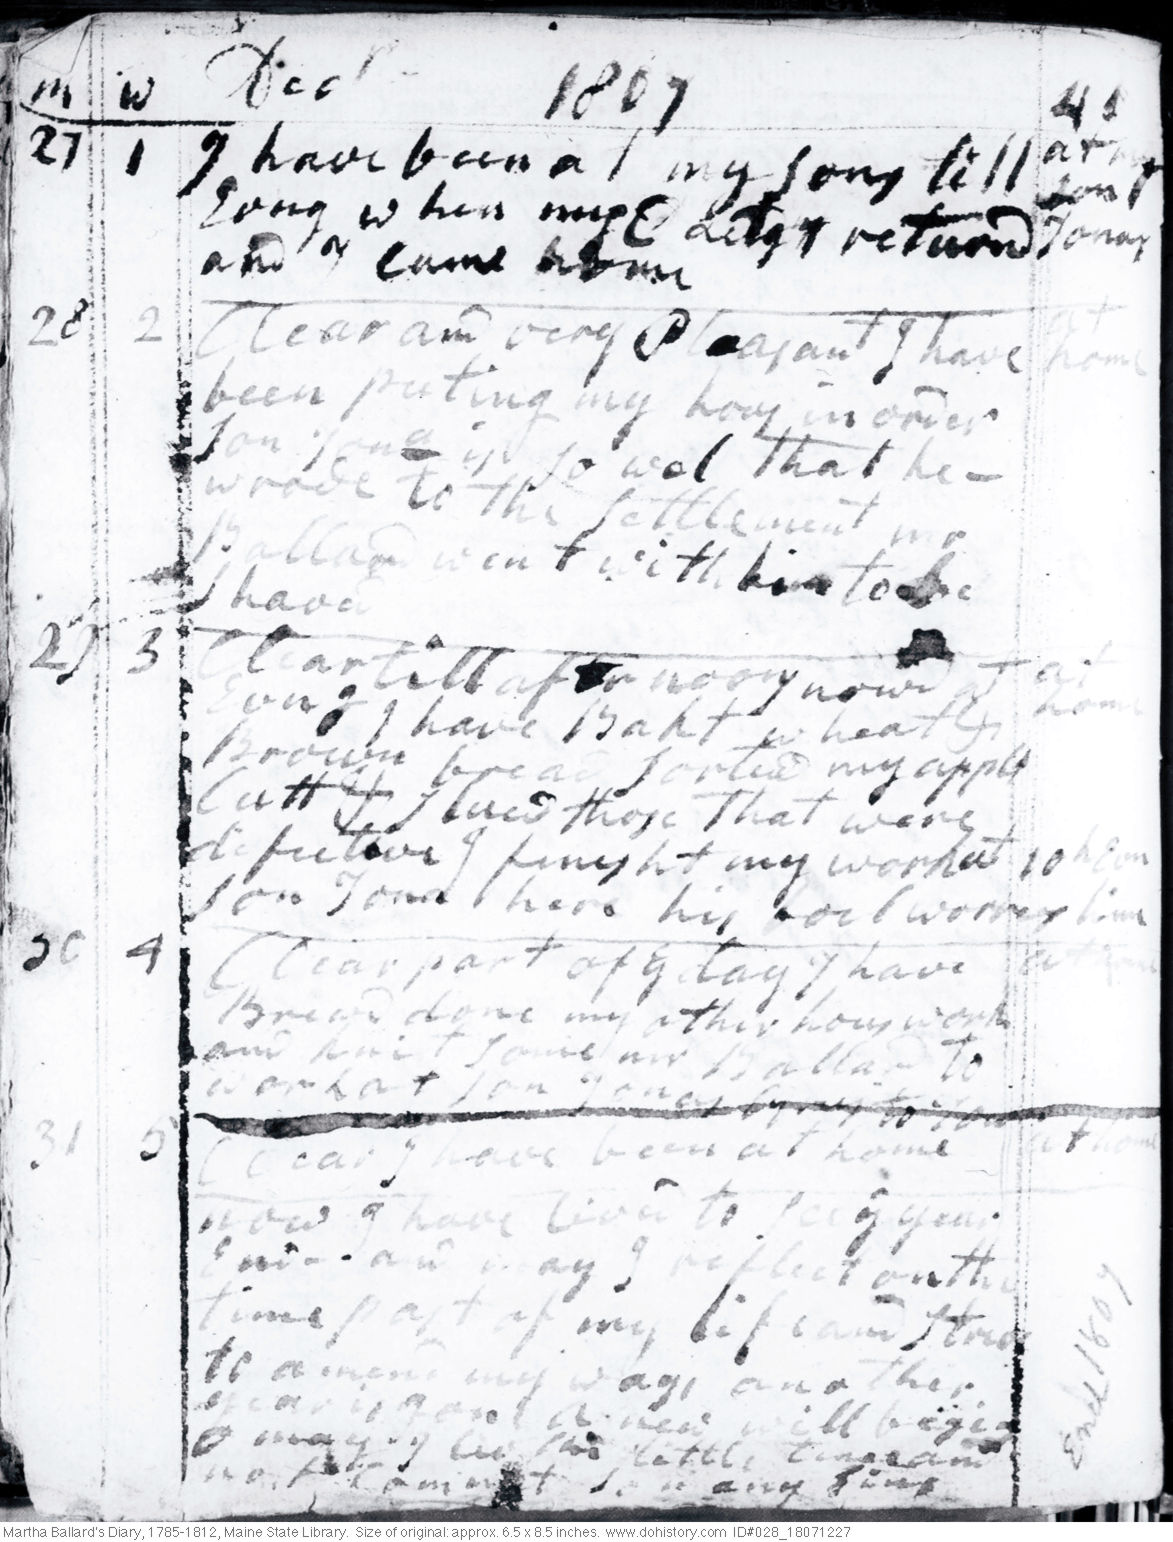 m w Decr 1807 41
27 1 I have been at my sons till at my
Evng when mr & Létys returnd Jonas
and I came home
28 2 Clear and very Pleasant I have at
been puting my hous in order home
son Jona is so wel that he
wrode to the settlement mr
Ballard went with him to be
shavd
29 3 Clear till afternoon snowd at at
Evng I have Bakt wheat & home
Brown bread sorted my appls
Cutt & stued those that were
defective I finisht my work at 10 h Evn
son Jona here his
30 4 Clear part of ye day I have at home
Brewd done my other hous work
and knit some mr Ballard to
work at son Jonas
31 5 Clear I have been at home at home
now I have livd to see ye year
End and may I reflect on the
time past of my life and strive
to amend my ways another
year is gone a new will begin
O may I live ye little time and
not Commit so many sins
End 1807
Martha Ballard's Diary, 1785-1812, Maine State Library. Size of original: approx. 6.5 x 8.5 inches. www.dohistory.com ID#028_18071227